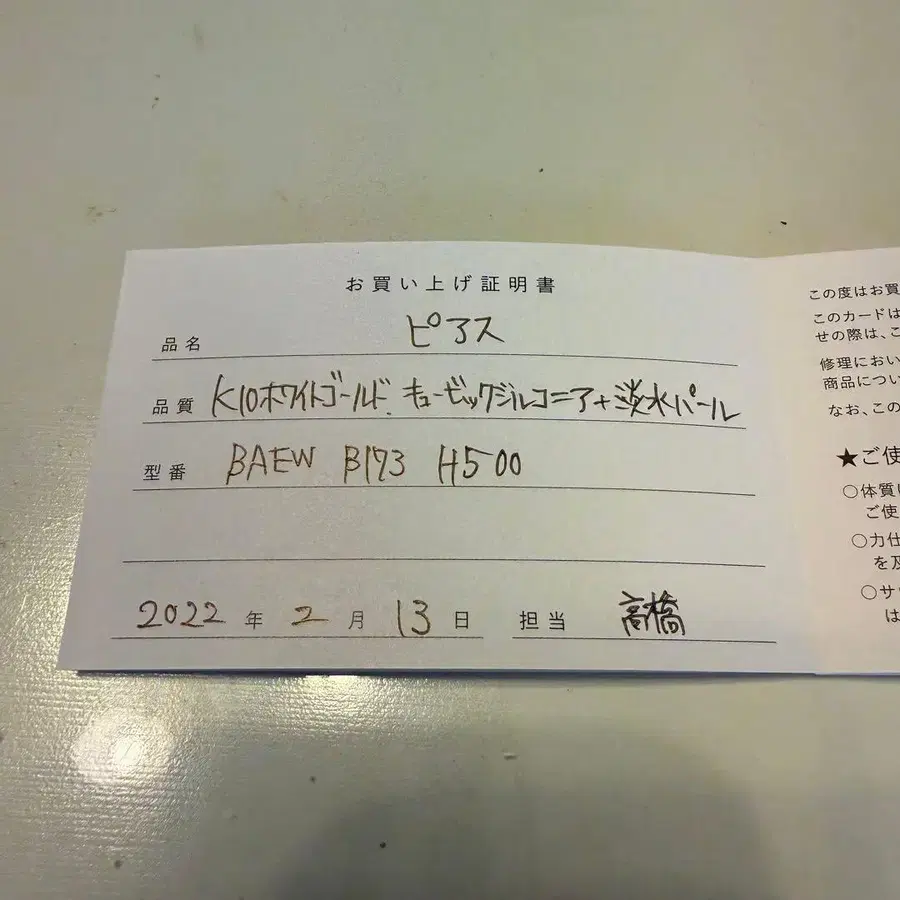 お買い上げ証明書
品名 ピアス
品質 K10ホワイトゴールド.キュービックジルコニア+淡水パール
型番 BAEW B173 H500
2022年2月13日 担当 高橋
この度はお買
このカードは
せの際は、こ
修理におい
商品につい
なお、この
★ご使
○体質
ご使
○力仕
を及
○サ
は